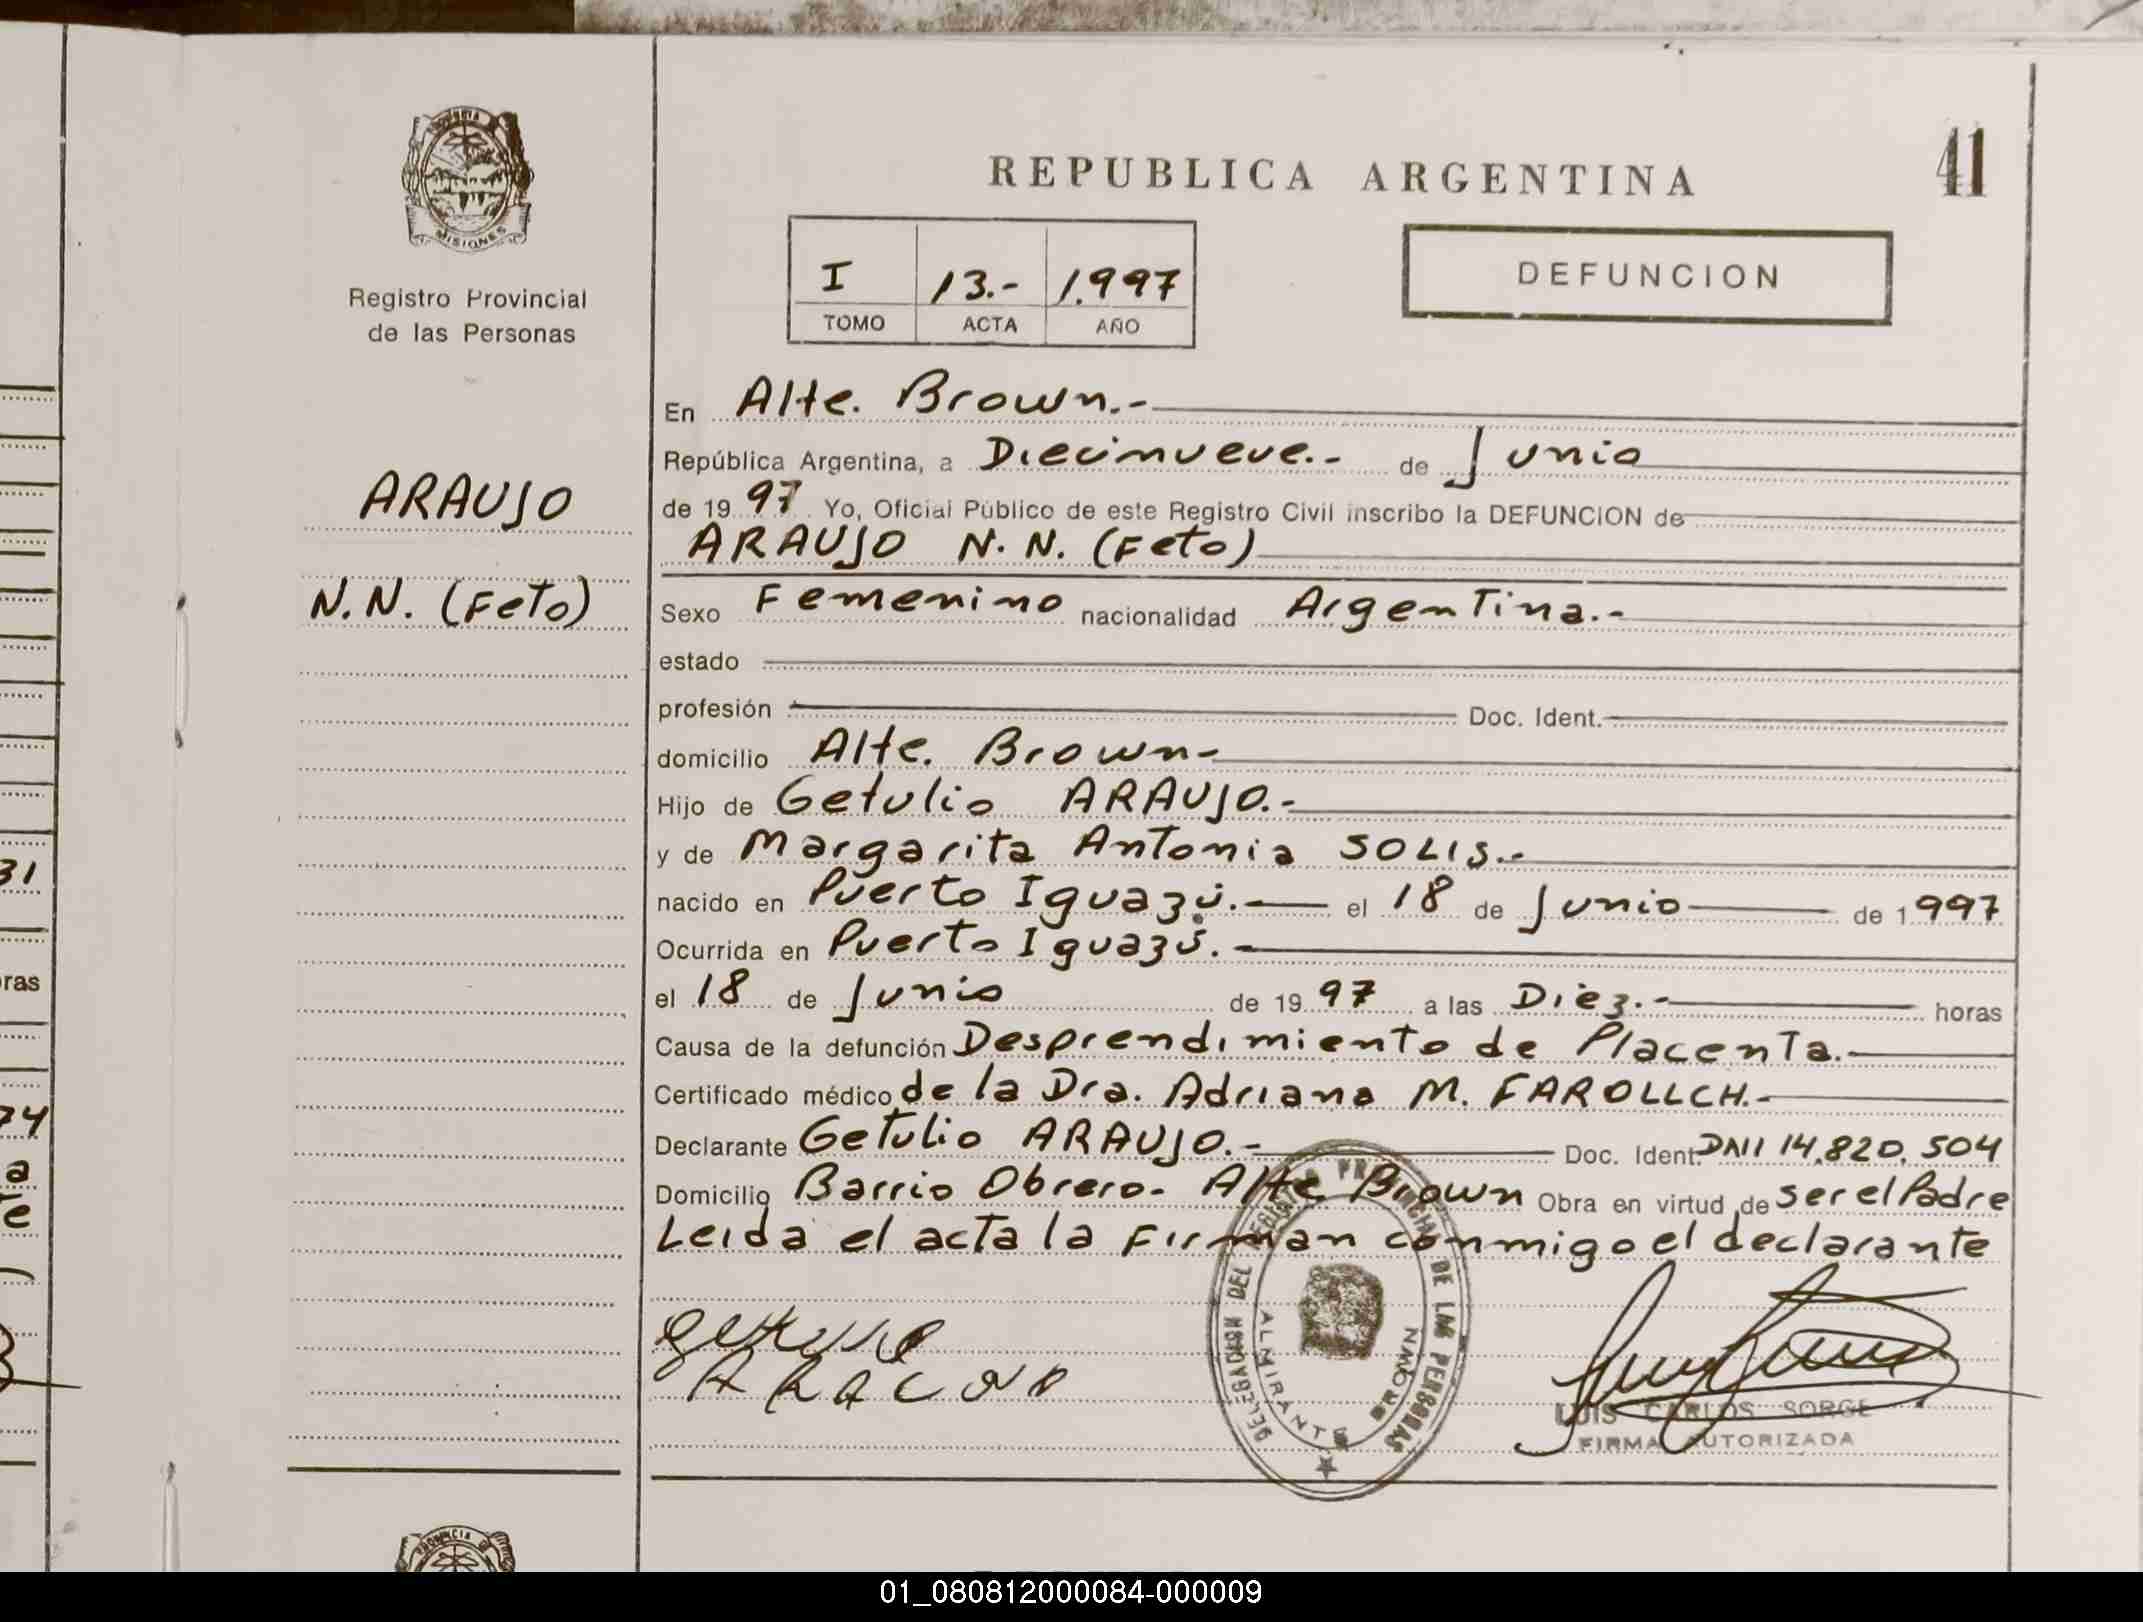 REPUBLICA ARGENTINA
41
PROVINCIA
MISIONES
Registro Provincial
de las Personas
I 13.- 1.997
TOMO ACTA AÑO
DEFUNCION
ARAUJO
N.N. (Feto)
En Alte. Brown.-
República Argentina, a Diecinueve.- de Junio
de 19 97 Yo, Oficial Público de este Registro Civil inscribo la DEFUNCION de
ARAUJO N.N. (Feto)
Sexo Femenino nacionalidad Argentina.-
estado
profesión Doc. Ident.
domicilio Alte. Brown-
Hijo de Getulio ARAUJO.-
y de Margarita Antonia SOLIS.-
nacido en Puerto Iguazú.- el 18 de Junio de 1997
Ocurrida en Puerto Iguazú.-
el 18 de Junio de 19 97 a las Diez.- horas
Causa de la defunción Desprendimiento de Placenta.-
Certificado médico de la Dra. Adriana M. FAROLLCH.-
Declarante Getulio ARAUJO.- Doc. Ident. DNI 14.820.504
Domicilio Barrio Obrero- Alte Brown Obra en virtud de ser el Padre
Leida el acta la Firman conmigo el declarante
DELEGACION DEL REGISTRO PROVINCIAL DE LAS PERSONAS
ALMIRANTE BROWN
LUIS CARLOS SORGE
FIRMA AUTORIZADA
31
ras
74
a
te
PROVINCIA
01_080812000084-000009